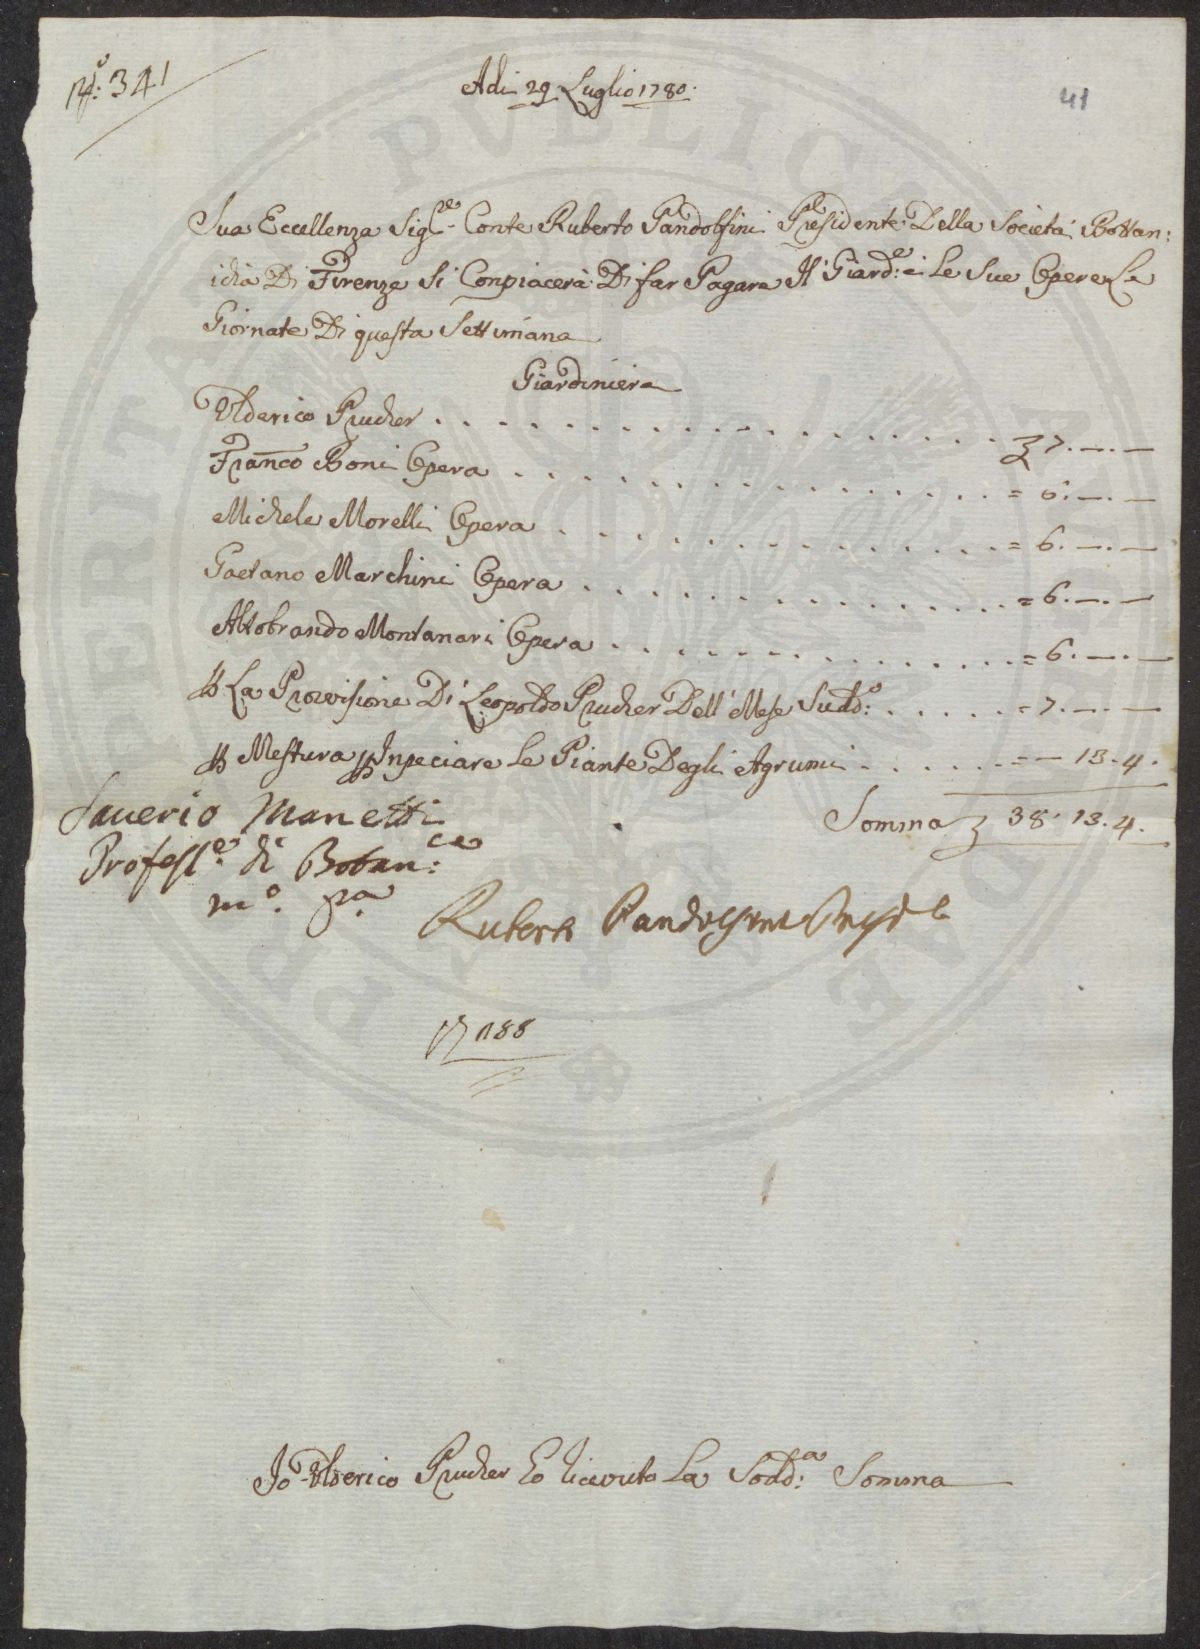 N.º 341
Adi 29 Luglio 1780.
41
Sua Eccellenza Sig.re Conte Ruberto Pandolfini Presidente Della Società Bottan:
icha Di Firenze Si Conpiacerà Di far Pagare Il Giard.e: e Le Sue Opere Le
Giornate Di questa Settimana
Giardiniere
Uldarico Prucher . . . . . . . . . . £ 7.—.—
Franco Boni Opera . . . . . . . . . . = 6.—.—
Michele Morelli Opera . . . . . . . . . . = 6.—.—
Gaetano Marchini Opera . . . . . . . . . . = 6.—.—
Altobrando Montanari Opera . . . . . . . . . . = 6.—.—
P La Provvisione Di Leopoldo Prucher Dell' Mese Sudd:o . . . . . . = 7.—.—
P Mestura P Inpeciare Le Piante Degli Agrumi . . . . . . = — 13.4.
Somma £ 38. 13.4.
Saverio Manetti
Profess.e di Botan:ca
m.o p.a
Ruberto Pandolfini Presid.e
1188
Io Ulderico Prucher Ho ricevuto La Sodd:a Somma
PVBLICA
PERITA